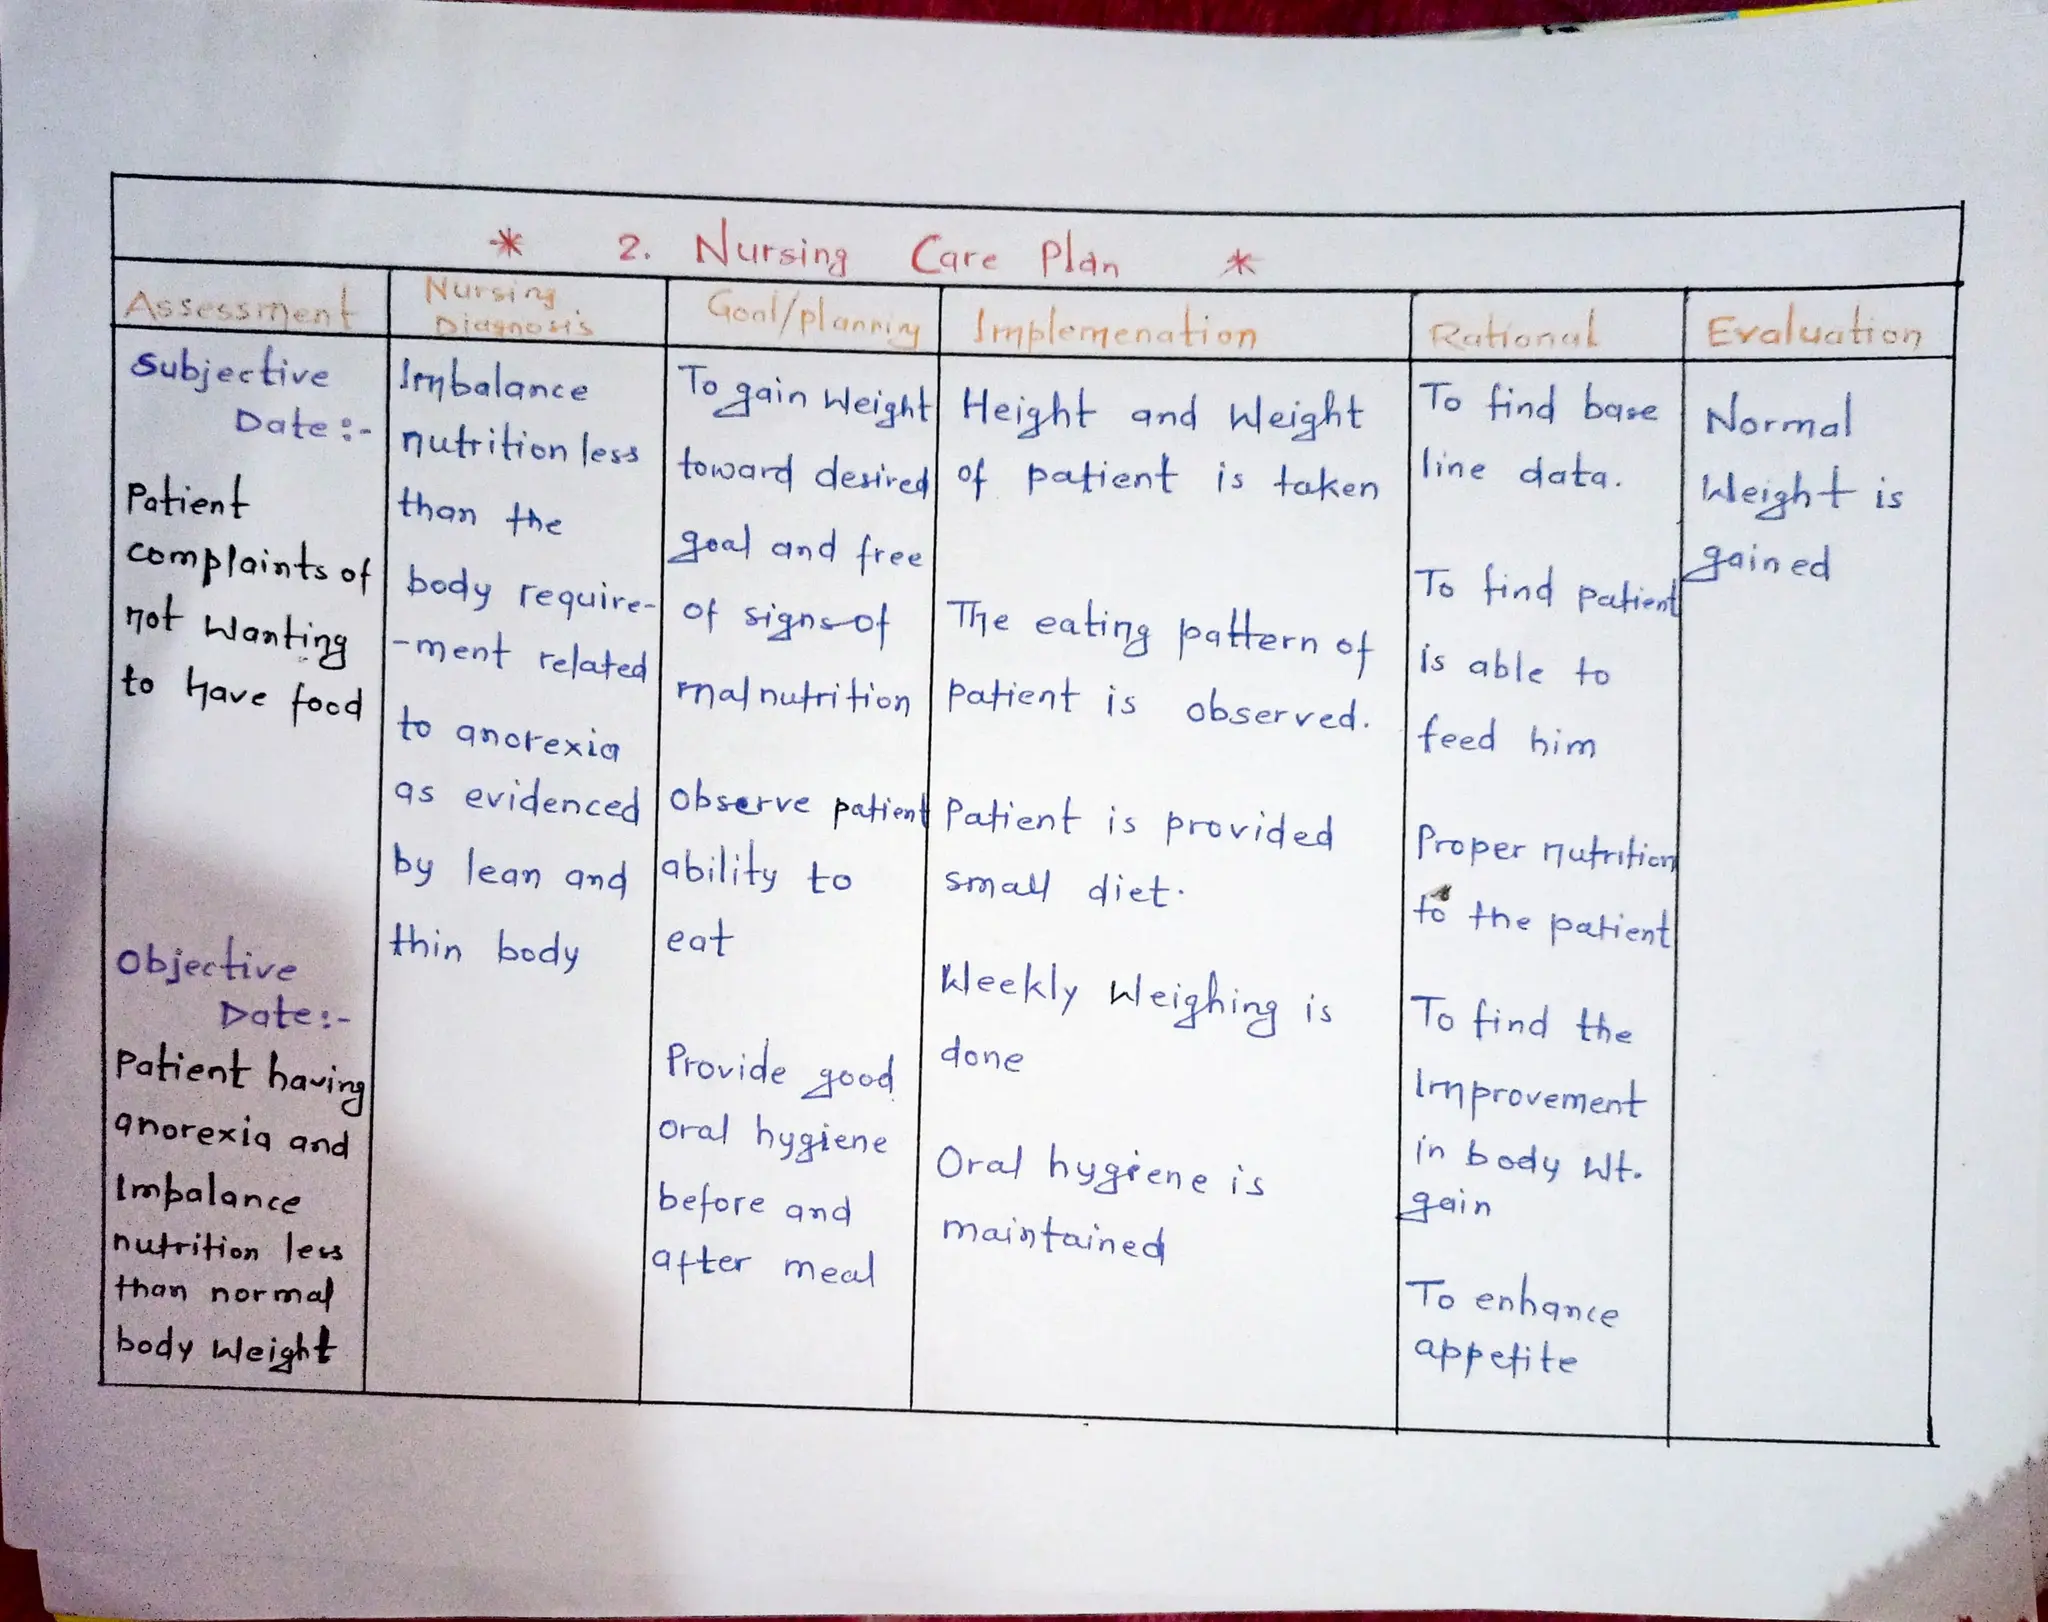 * 2. Nursing Care Plan *
Assessment
Subjective
Date :-
Patient
complaints of
not Wanting
to have food
Objective
Date :-
Patient having
anorexia and
Imbalance
nutrition less
than normal
body Weight
Nursing
Diagnosis
Imbalance
nutrition less
than the
body require-
-ment related
to anorexia
as evidenced
by lean and
thin body
Goal/planning
To gain Weight
toward desired
goal and free
of signs of
malnutrition
Observe patient
ability to
eat
Provide good
oral hygiene
before and
after meal
Implemenation
Height and Weight
of patient is taken
The eating pattern of
patient is observed.
Patient is provided
small diet.
Weekly Weighing is
done
Oral hygiene is
maintained
Rational
To find base
line data.
To find patient
is able to
feed him
Proper nutrition
to the patient
To find the
Improvement
in body Wt.
gain
To enhance
appetite
Evaluation
Normal
Weight is
gained